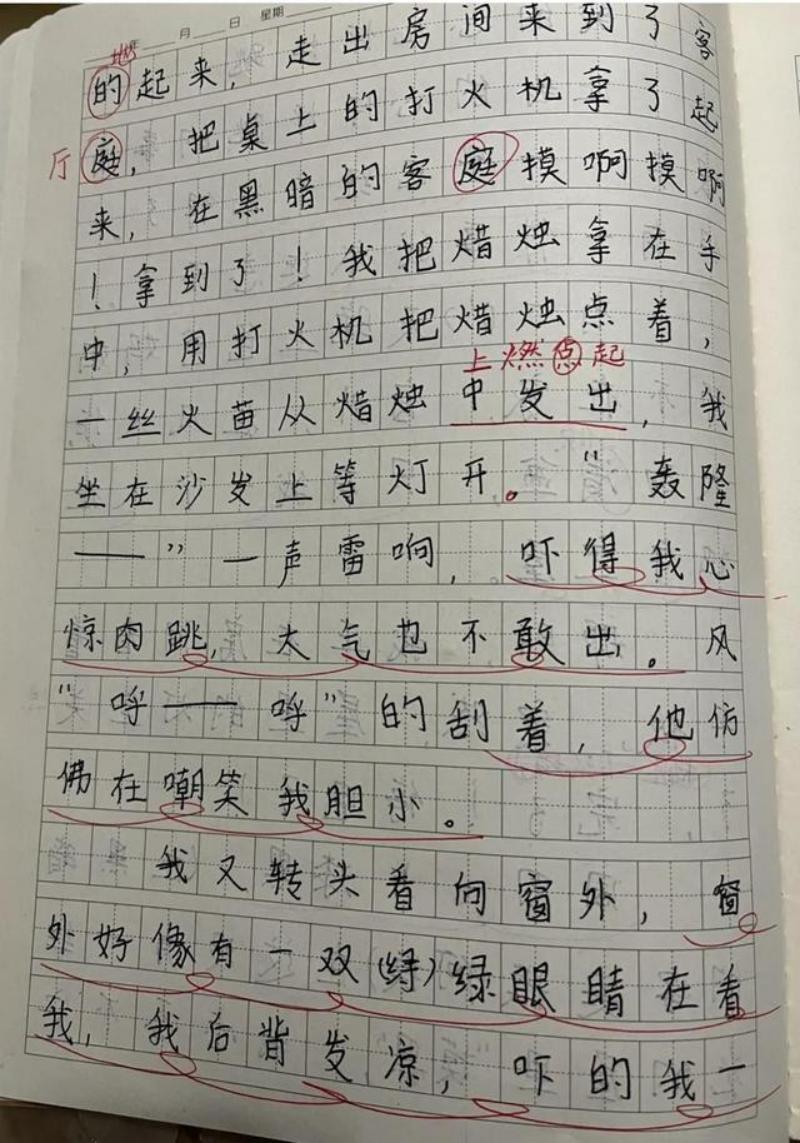 年 月 日 星期
地
的起来，走出房间来到了客
厅
庭，把桌上的打火机拿了起
来，在黑暗的客庭摸啊摸啊
！拿到了！我把焟烛拿在手
中，用打火机把焟烛点着，
上燃点起
一丝火苗从焟烛中发出，我
坐在沙发上等灯开。“轰隆
——”一声雷响，吓得我心
惊肉跳，大气也不敢出。风
“呼——呼”的刮着，他仿
佛在嘲笑我胆小。
我又转头看向窗外，窗
外好像有一双（绿）绿眼睛在看
我，我后背发凉，吓的我一